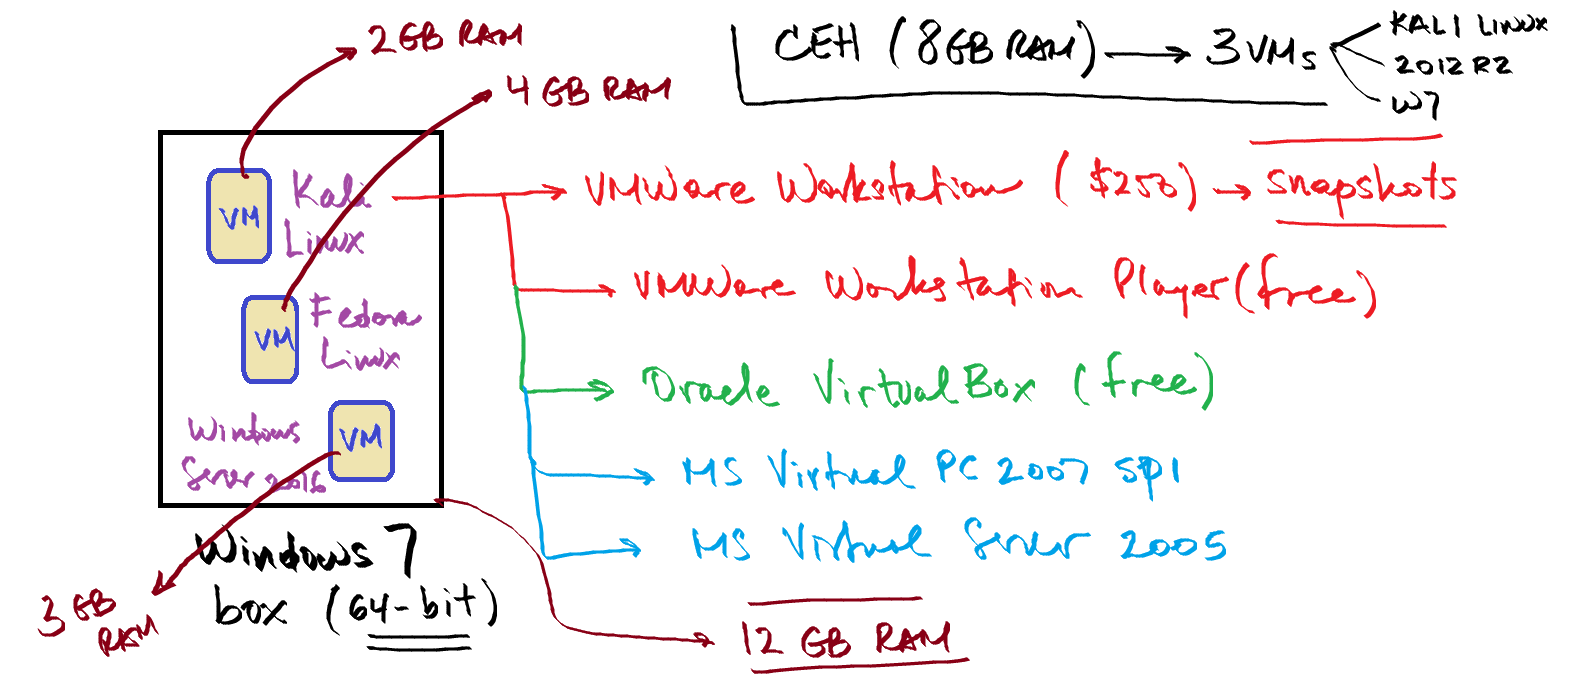 2GB RAM
4 GB RAM
CEH (8GB RAM) → 3 VMs
KALI LINUX
2012 R2
W7
VM
Kali
Linux
VM
Fedora
Linux
VM
Windows
Server 2016
Windows 7
box (64-bit)
3 GB
RAM
VMWare Workstation ($250) → snapshots
VMWare Workstation Player (free)
Oracle VirtualBox (free)
MS Virtual PC 2007 SP1
MS Virtual Server 2005
12 GB RAM